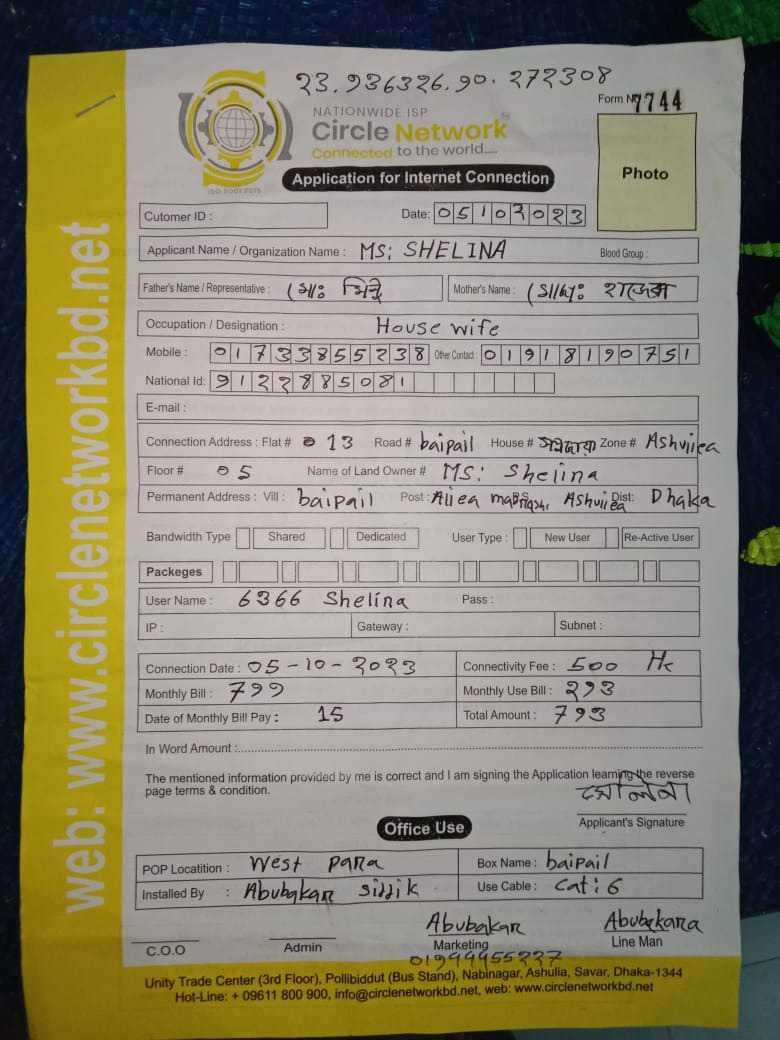 23.936326.90.272308
NATIONWIDE ISP
Form No 7744
Circle Network
Connected to the world.....
ISO 9001:2015
Photo
Application for Internet Connection
Cutomer ID :
Date: 05102023
Applicant Name / Organization Name : MS: SHELINA
Blood Group :
Father's Name / Representative :
Mother's Name :
Occupation / Designation : House wife
Mobile : 01733855238 Other Contact : 01918190751
National Id: 9122885081
E-mail :
Connection Address : Flat # 13 Road # baipail House # Zone # Ashuliea
Floor # 05 Name of Land Owner # MS: Shelina
Permanent Address : Vill : baipail Post : Aliea Ashuliea Dist: Dhaka
Bandwidth Type Shared Dedicated User Type : New User Re-Active User
Packeges
User Name : 6366 Shelina Pass :
IP : Gateway : Subnet :
Connection Date : 05-10-2023 Connectivity Fee : 500
Monthly Bill : 799 Monthly Use Bill : 293
Date of Monthly Bill Pay : 15 Total Amount : 793
In Word Amount :
The mentioned information provided by me is correct and I am signing the Application learning the reverse
page terms & condition.
সেলিনা
Applicant's Signature
Office Use
POP Locatition : West para Box Name : baipail
Installed By : Abubakar siddik Use Cable : Cat: 6
Abubakar Abubakara
C.O.O Admin Marketing Line Man
Unity Trade Center (3rd Floor), Pollibiddut (Bus Stand), Nabinagar, Ashulia, Savar, Dhaka-1344
Hot-Line: + 09611 800 900, info@circlenetworkbd.net, web: www.circlenetworkbd.net
web: www.circlenetworkbd.net